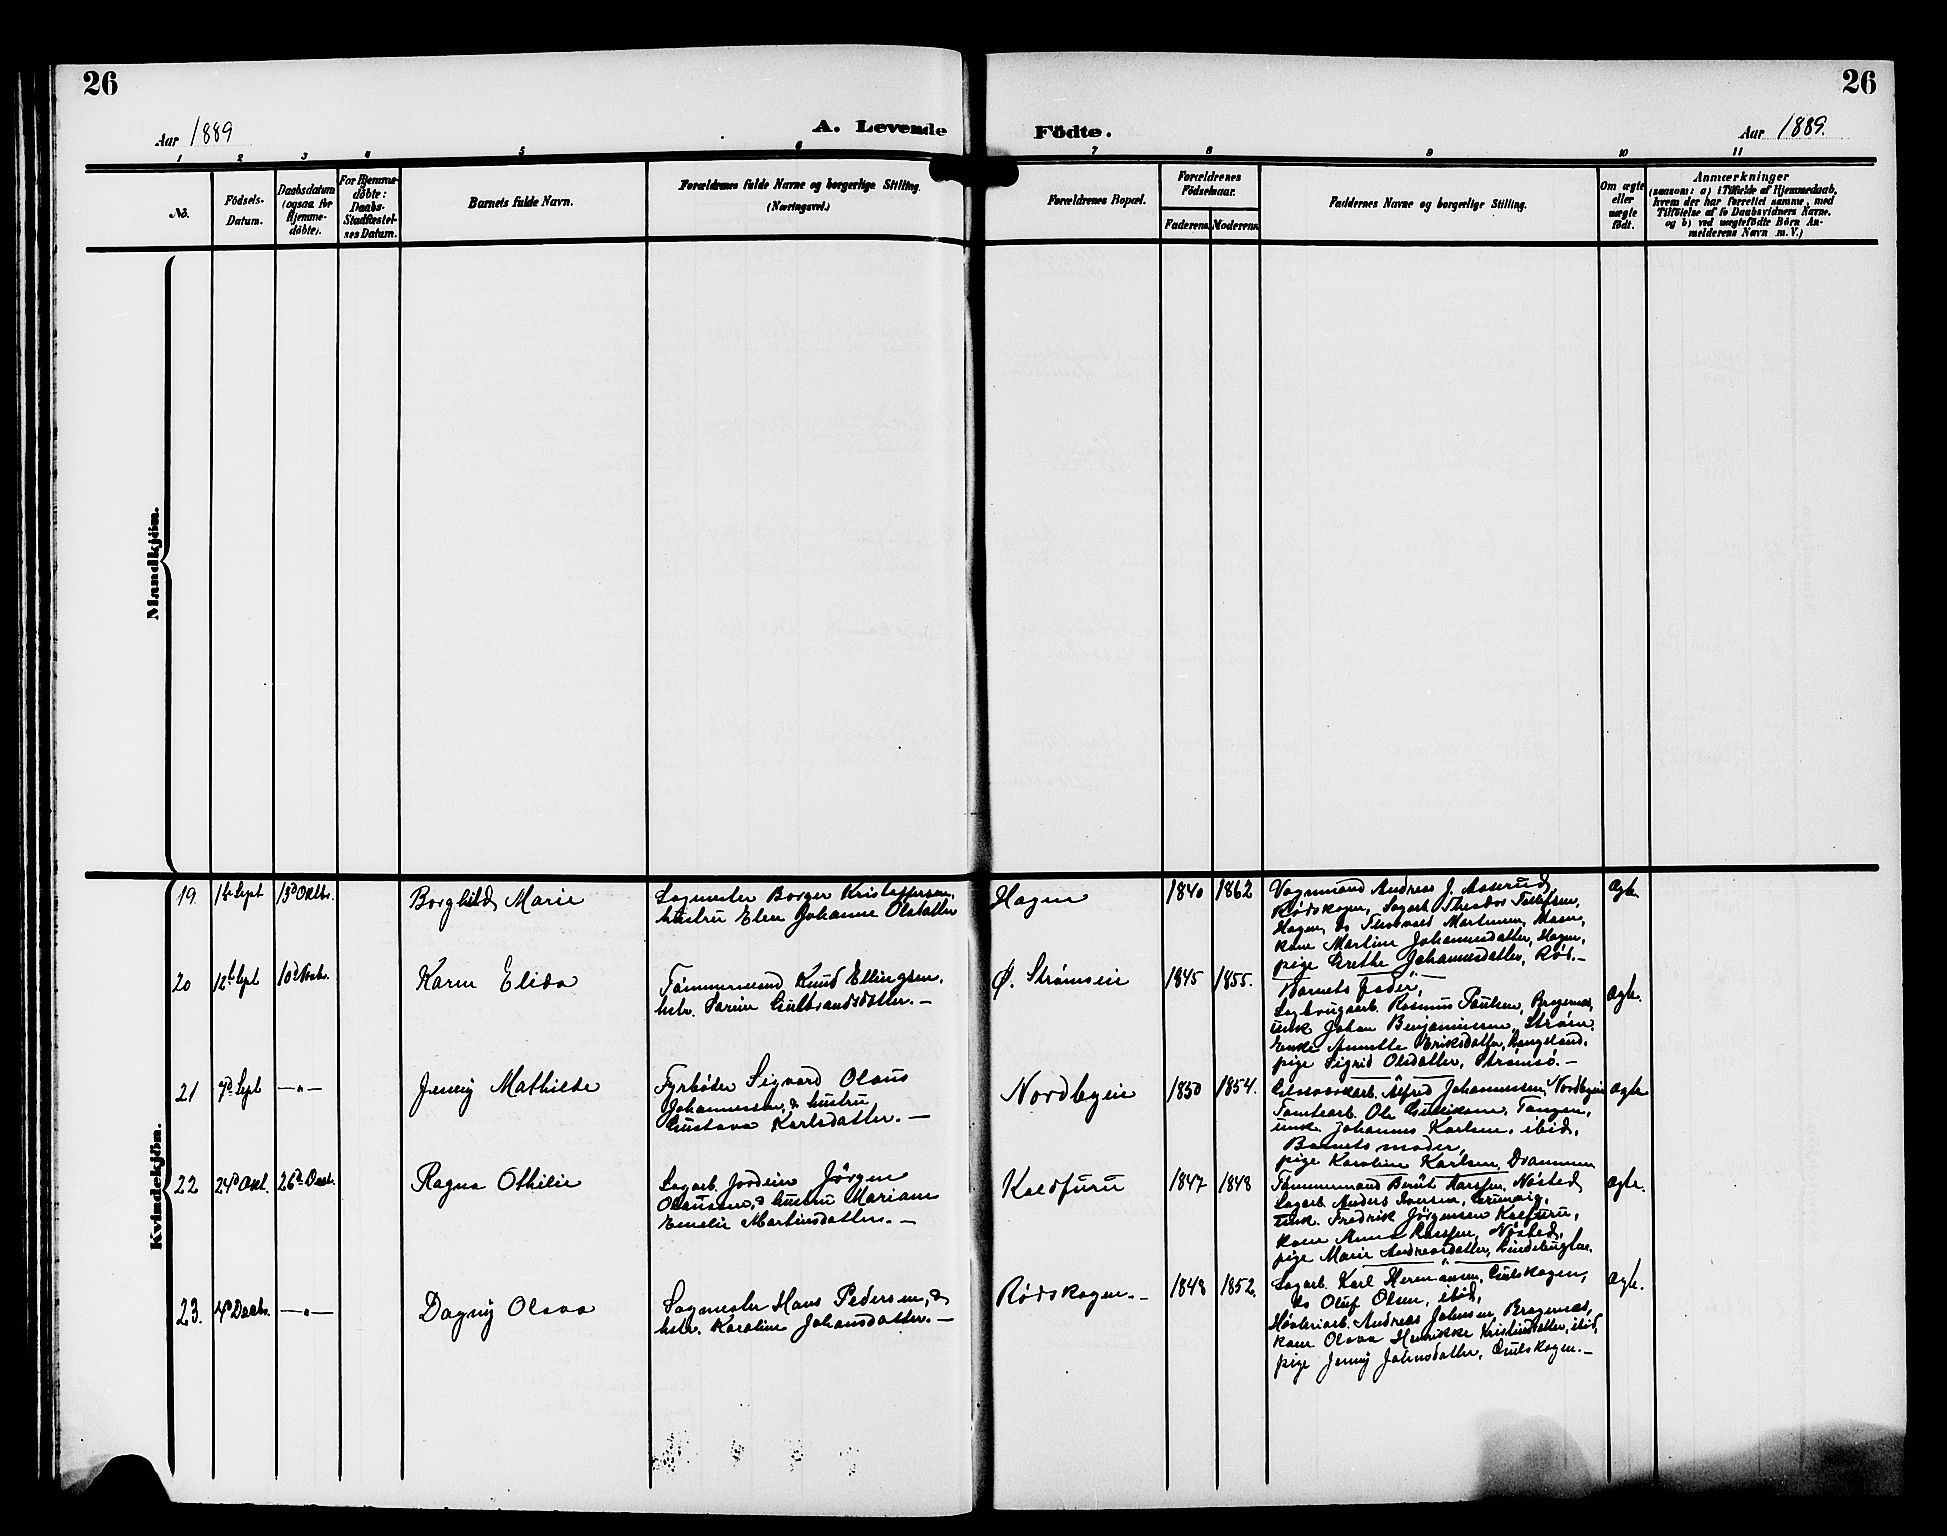 26
26
Aar 1889
A. Levende
Födte.
Aar 1889.
1 2 3 4 5 6 7 8 9 10 11
No.
Födsels-
Datum.
Daabsdatum
(ogsaa for
Hjemme-
döbte).
For Hjemme-
döbte:
Daabs-
Stadfæstel-
ses Datum.
Barnets fulde Navn.
Forældrenes fulde Navne og borgerlige Stilling.
(Næringsvei.)
Forældrenes Bopæl.
Forældrenes
Födselsaar.
Faderens.
Moderens.
Faddernes Navne og borgerlige Stilling.
Om ægte
eller
uægte
födt.
Anmærkninger
(saasom: a) i Tilfælde af Hjemmedaab,
hvem der har forrettet samme, med
Tilföielse af to Daabsvidners Navne,
og b) ved uægtefödte Börn An-
melderens Navn m. V.)
Mandkjön.
Kvindekjön.
19.
Borghild Marie
Sagmester Borger Kristoffersen,
hustru Elen Johanne Olsdatter
Hagen
1840
1862
Vognmand Andreas J. Aaserud,
Rödskogen, Sagarb. Theodor
Hagen, do Thorvald Martinsen,
kone Martine Johannesdatter, Hagen,
pige Grethe Johannesdatter,
Ægte
20
Karen Elida
Tømmermand Knud Ellingsen,
hstr. Karine Gulbrandsdatter. —
Ø. Strømsein
1845
1855.
Barnets fader,
Rasmus Paulsen, Bragernæs,
unk. Johan Benjaminsen, Strøm.
Enke Annette Eriksdatter,
pige Sigrid Olsdatter, Strømsø. —
Ægte.
21
7d Sept
—"—
Jenny Mathilde
Fyrböter Sigvard Olaus
Johannessen, & hustru
Gustava Karlsdatter. —
Nordbyein
1850
1854.
Alfred Johannessen, Nordbyein
Tomtearb. Ole Tangen,
unk. Johannes Karlsen, ibid,
Barnets moder,
pige Karoline Karlsen, Drammen
Ægte
22
Ragna Othilie
Sagarb. Jørgen
Olaussen, & hustru Mariane
Emelie Martinsdatter. —
Koldfuru
1847
1848
Tømmermand Larssen, Nøsted,
Sagarb. Anders Iversen,
unk. Fredrik Jørgensen Kolfuru,
kone Anna Larssen, Nøsted,
pige Marie Andreasdatter,
Ægte.
23.
—"—
Dagny Olava
Sagmester Hans Pedersen, &
hstr. Karoline Johansdatter. —
Rødskogen. —
1848
1852.
Sagarb. Karl Hermansen, Gulskogen,
do Oluf Olsen, ibid,
Andreas Johnsen, Bragernæs,
kone Olava Henrikke Kristiansdatter, ibid,
pige Jenny Johnsdatter, Gulskogen. —
Ægte.